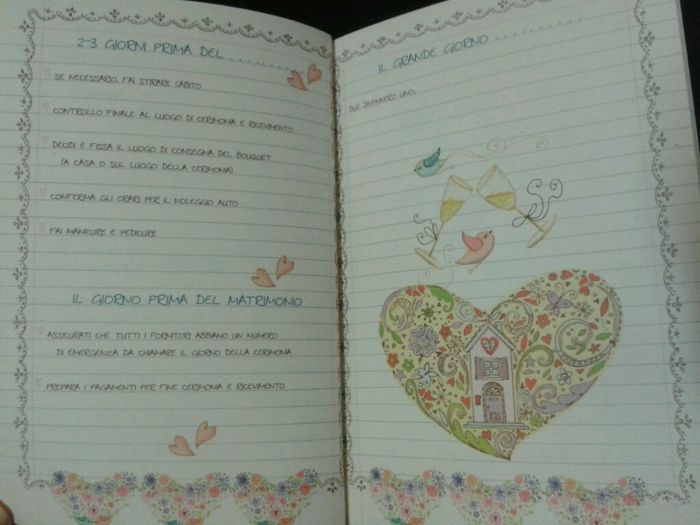 2-3 GIORNI PRIMA DEL . . . . . . . .
SE NECESSARIO, FAI STIRARE L'ABITO
CONTROLLO FINALE AL LUOGO DI CERIMONIA E RICEVIMENTO
DECIDI E FISSA IL LUOGO DI CONSEGNA DEL BOUQUET
(A CASA O SUL LUOGO DELLA CERIMONIA).
CONFERMA GLI ORARI PER IL NOLEGGIO AUTO
FAI MANICURE E PEDICURE
IL GIORNO PRIMA DEL MATRIMONIO
ASSICURATI CHE TUTTI I FORNITORI ABBIANO UN NUMERO
DI EMERGENZA DA CHIAMARE IL GIORNO DELLA CERIMONIA
PREPARA I PAGAMENTI PER FINE CERIMONIA E RICEVIMENTO
IL GRANDE GIORNO . . . . . . . . . .
DUE DIVENNERO UNO...